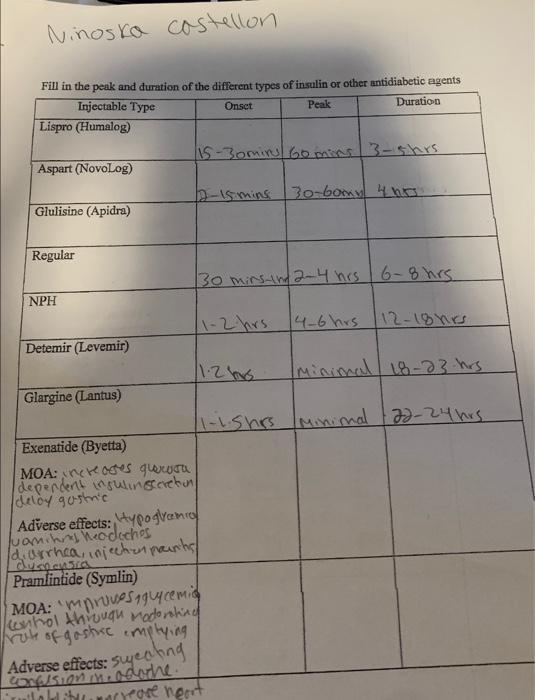 Ninoska castellon
Fill in the peak and duration of the different types of insulin or other antidiabetic agents
Injectable Type Onset Peak Duration
Lispro (Humalog)
15-30mins 60 mins 3-5hrs
Aspart (NovoLog)
15mins 30-60 4 hrs
Glulisine (Apidra)
Regular
30 mins- 2-4 hrs 6-8 hrs
NPH
1-2 hrs 4-6 hrs 12-18 hrs
Detemir (Levemir)
1-2 hrs minimal 18-23 hrs
Glargine (Lantus)
1-1.5hrs minimal 22-24 hrs
Exenatide (Byetta)
MOA: increases
dependent insulin secretion
delay gastric
Adverse effects:
diarrhea, injection
Pramlintide (Symlin)
MOA: improves glycemic
control through
rate of gastric emptying
Adverse effects: sweating
confusion
increase heart